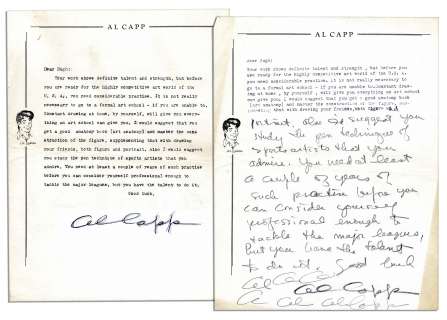 AL CAPP
Dear Hugh:
Your work shows definite talent and strength, but before
you are ready for the highly competitive art world of the
U. S. A., you need considerable practice. It is not really
necessary to go to a formal art school - if you are unable to.
Constant drawing at home, by yourself, will give you every-
thing an art school can give you. I would suggest that you
get a good anatomy book (art anatomy) and master the
construction of the figure, supplementing that with drawing
your friends, both figure and portrait. Also I would suggest
you study the pen technique of sports artists that you
admire. You need at least a couple of years of such practice
before you can consider yourself professional enough to
tackle the major leagues, but you have the talent to do it.
Good luck,
Al Capp
AL CAPP
Dear Hugh:
Your work shows definite talent and strength, but before you
are ready for the highly competitive art world of the U.S. A.
you need considerable practice. It is not really necessary to
go to a formal art school - if you are unable to. Constant draw-
ing at home, by yourself, will give you everything an art school
can give you. I would suggest that you get a good anatomy book
(art anatomy) and master the construction of the figure,
that with drawing your friends, both figure &
portrait. Also I'd suggest you
study the pen technique of
sports artists that you
admire. You need at least
a couple of years of
such practice before you
can consider yourself
professional enough to
tackle the major leagues,
but you have the talent
to do it. Good luck
Al Capp
Al Capp
Al Capp